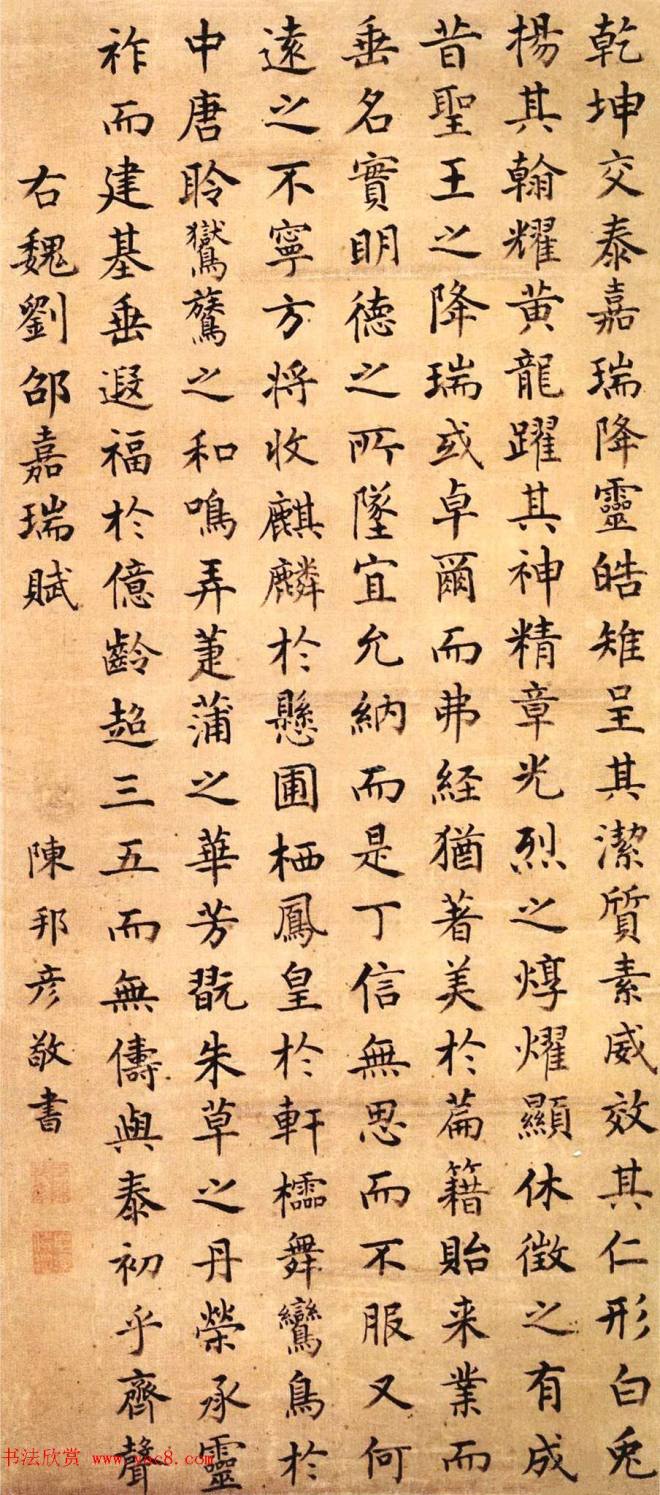 乾坤交泰嘉瑞降靈皓雉呈其潔質素威效其仁形白兎
楊其翰耀黄龍躍其神精章光烈之焞燿顯休徴之有成
昔聖王之降瑞或卓爾而弗経猶著美於篇籍貽来業而
垂名實明德之所墜宜允納而是丁信無思而不服又何
遠之不寧方将收麒麟於懸圃栖鳳皇於軒櫺舞鸞鳥於
中唐聆鸑鷟之和鳴弄萐蒲之華芳翫朱草之丹榮承靈
祚而建基垂遐福於億齡超三五而無儔與泰初乎齊聲
右魏劉邵嘉瑞賦
陳邦彦敬書
书法欣赏 www.yac8.com